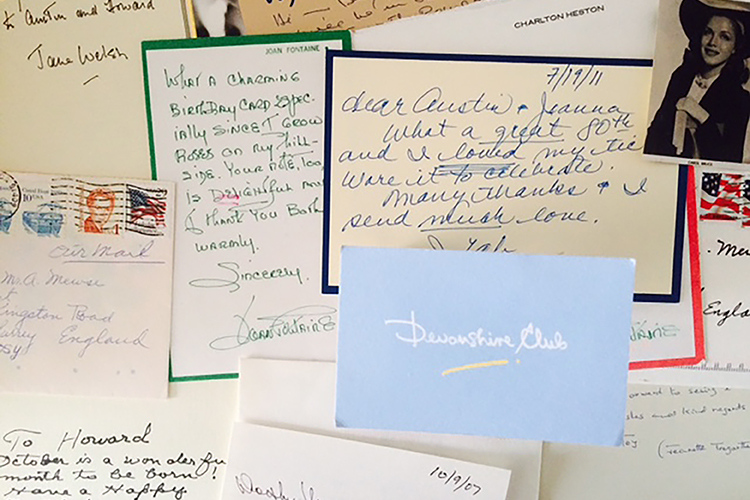 Austin and Howard
Jane Welsh
CHARLTON HESTON
JOAN FONTAINE
WHAT A CHARMING
BIRTHDAY CARD ESPEC
IALLY SINCE I GROW
ROSES ON MY HILL-
SIDE. YOUR NOTE, too,
IS DELIGHTFUL AND
I THANK YOU BOTH
WARMLY.
SINCERELY,
JOAN FONTAINE
7/19/11
dear Austin & Joanna
What a great 80th
and I loved my tie
Wore it to celebrate.
Many thanks & I
send much love.
Devonshire Club
air mail
Mr. A. Mewse
ingston Road
England
To Howard
October is a wonderfu
month to be born!
Have a Happy
10/9/07
England
TAINE
orward to seeing
and kind regards